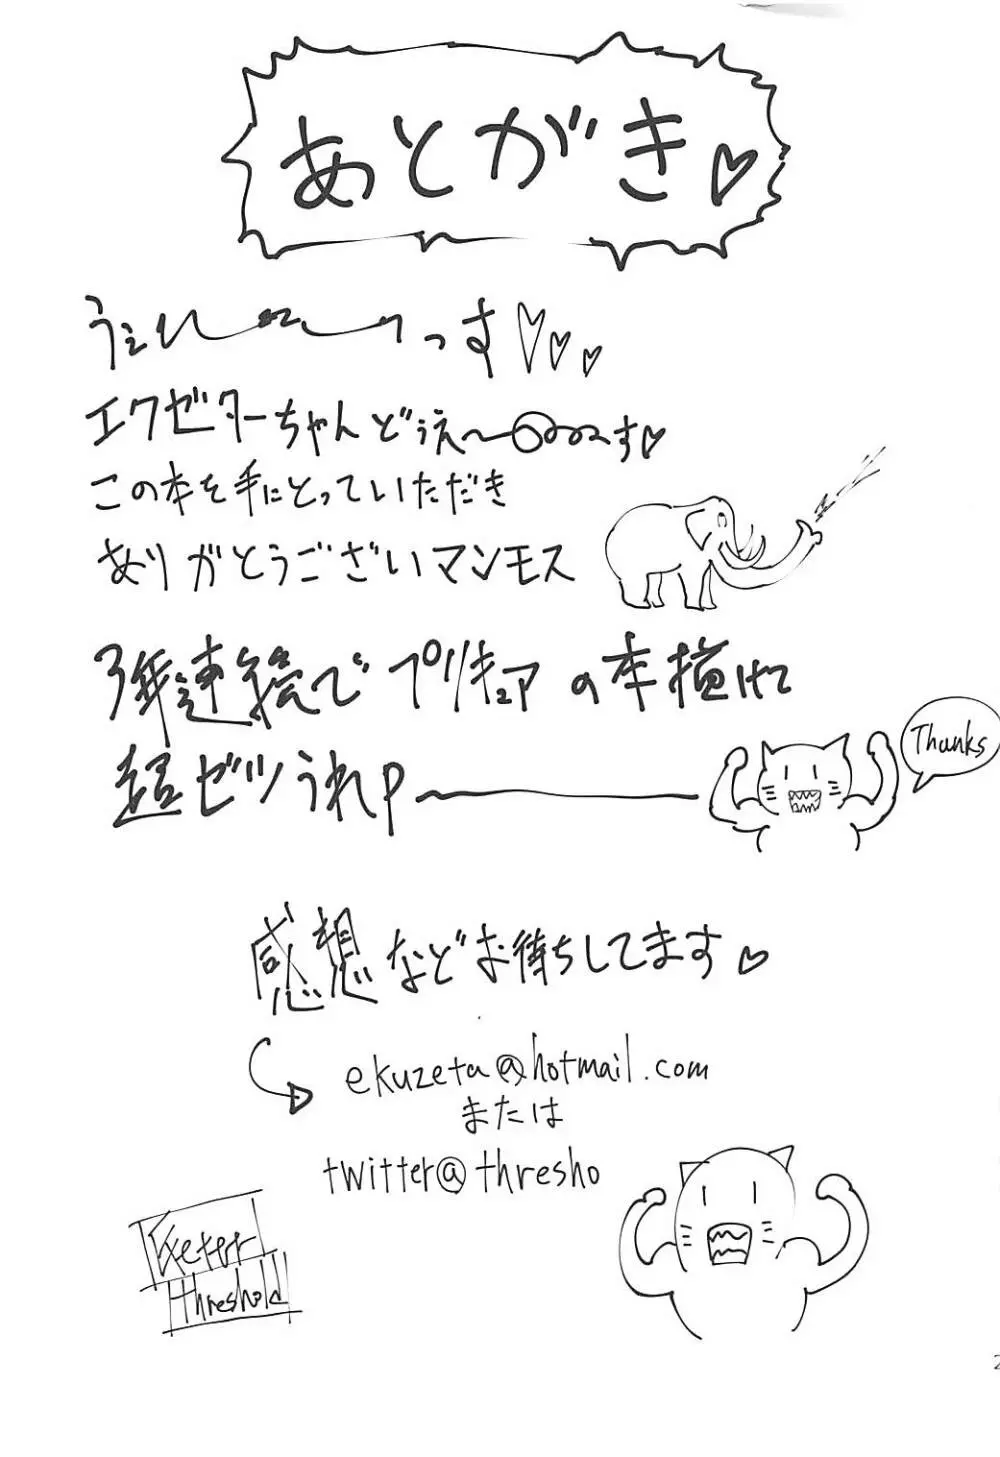 あとがき♡
うえい〜〜〜っす♡♡♡
エクゼターちゃんどぅえ〜〜〜〜す♡
この本を手にとっていただき
ありがとうございマンモス
3年連続でプリキュアの本描けて
超ゼツうれP〜
Thanks
感想などお待ちしてます♡
ekuzeta@hotmail.com
または
twitter@thresho
Exeter
threshold
2